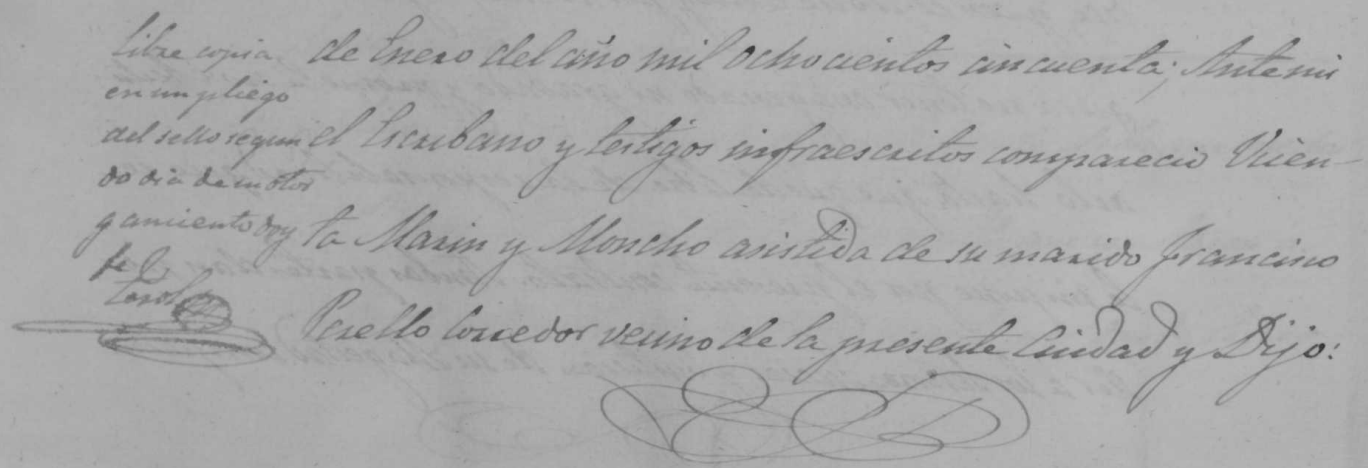 Libre copia
en un pliego
del sello segun
do dia de su otor
gamiento doy
fe
de Enero del año mil ochocientos cincuenta; Ante mi
el Escribano y testigos infraescritos comparecio Vicen-
ta Marin y Moncho asistida de su marido Francisco
Perello Corredor vecino de la presente Ciudad y Dijo: